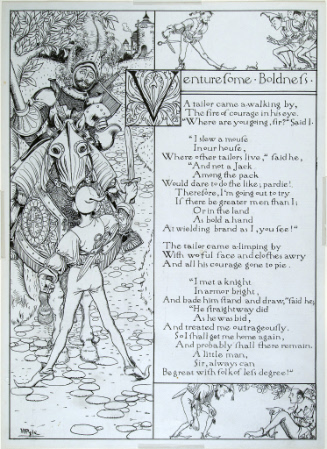 Venturesome · Boldness ·
A tailor came a-walking by,
The fire of courage in his eye.
"Where are you going, sir?" Said I.
"I slew a mouse
In our house,
Where other tailors live," said he,
"And not a Jack
Among the pack
Would dare to do the like; pardie!
Therefore, I'm going out to try
If there be greater men than I;
Or in the land
As bold a hand
At wielding brand as I, you see!"
The tailor came a-limping by
With woful face and clothes awry
And all his courage gone to pie.
"I met a knight
In armor bright,
And bade him stand and draw," said he;
"He straightway did
As he was bid,
And treated me outrageously.
So I shall get me home again,
And probably shall there remain.
A little man,
Sir, always can
Be great with folk of less degree!"